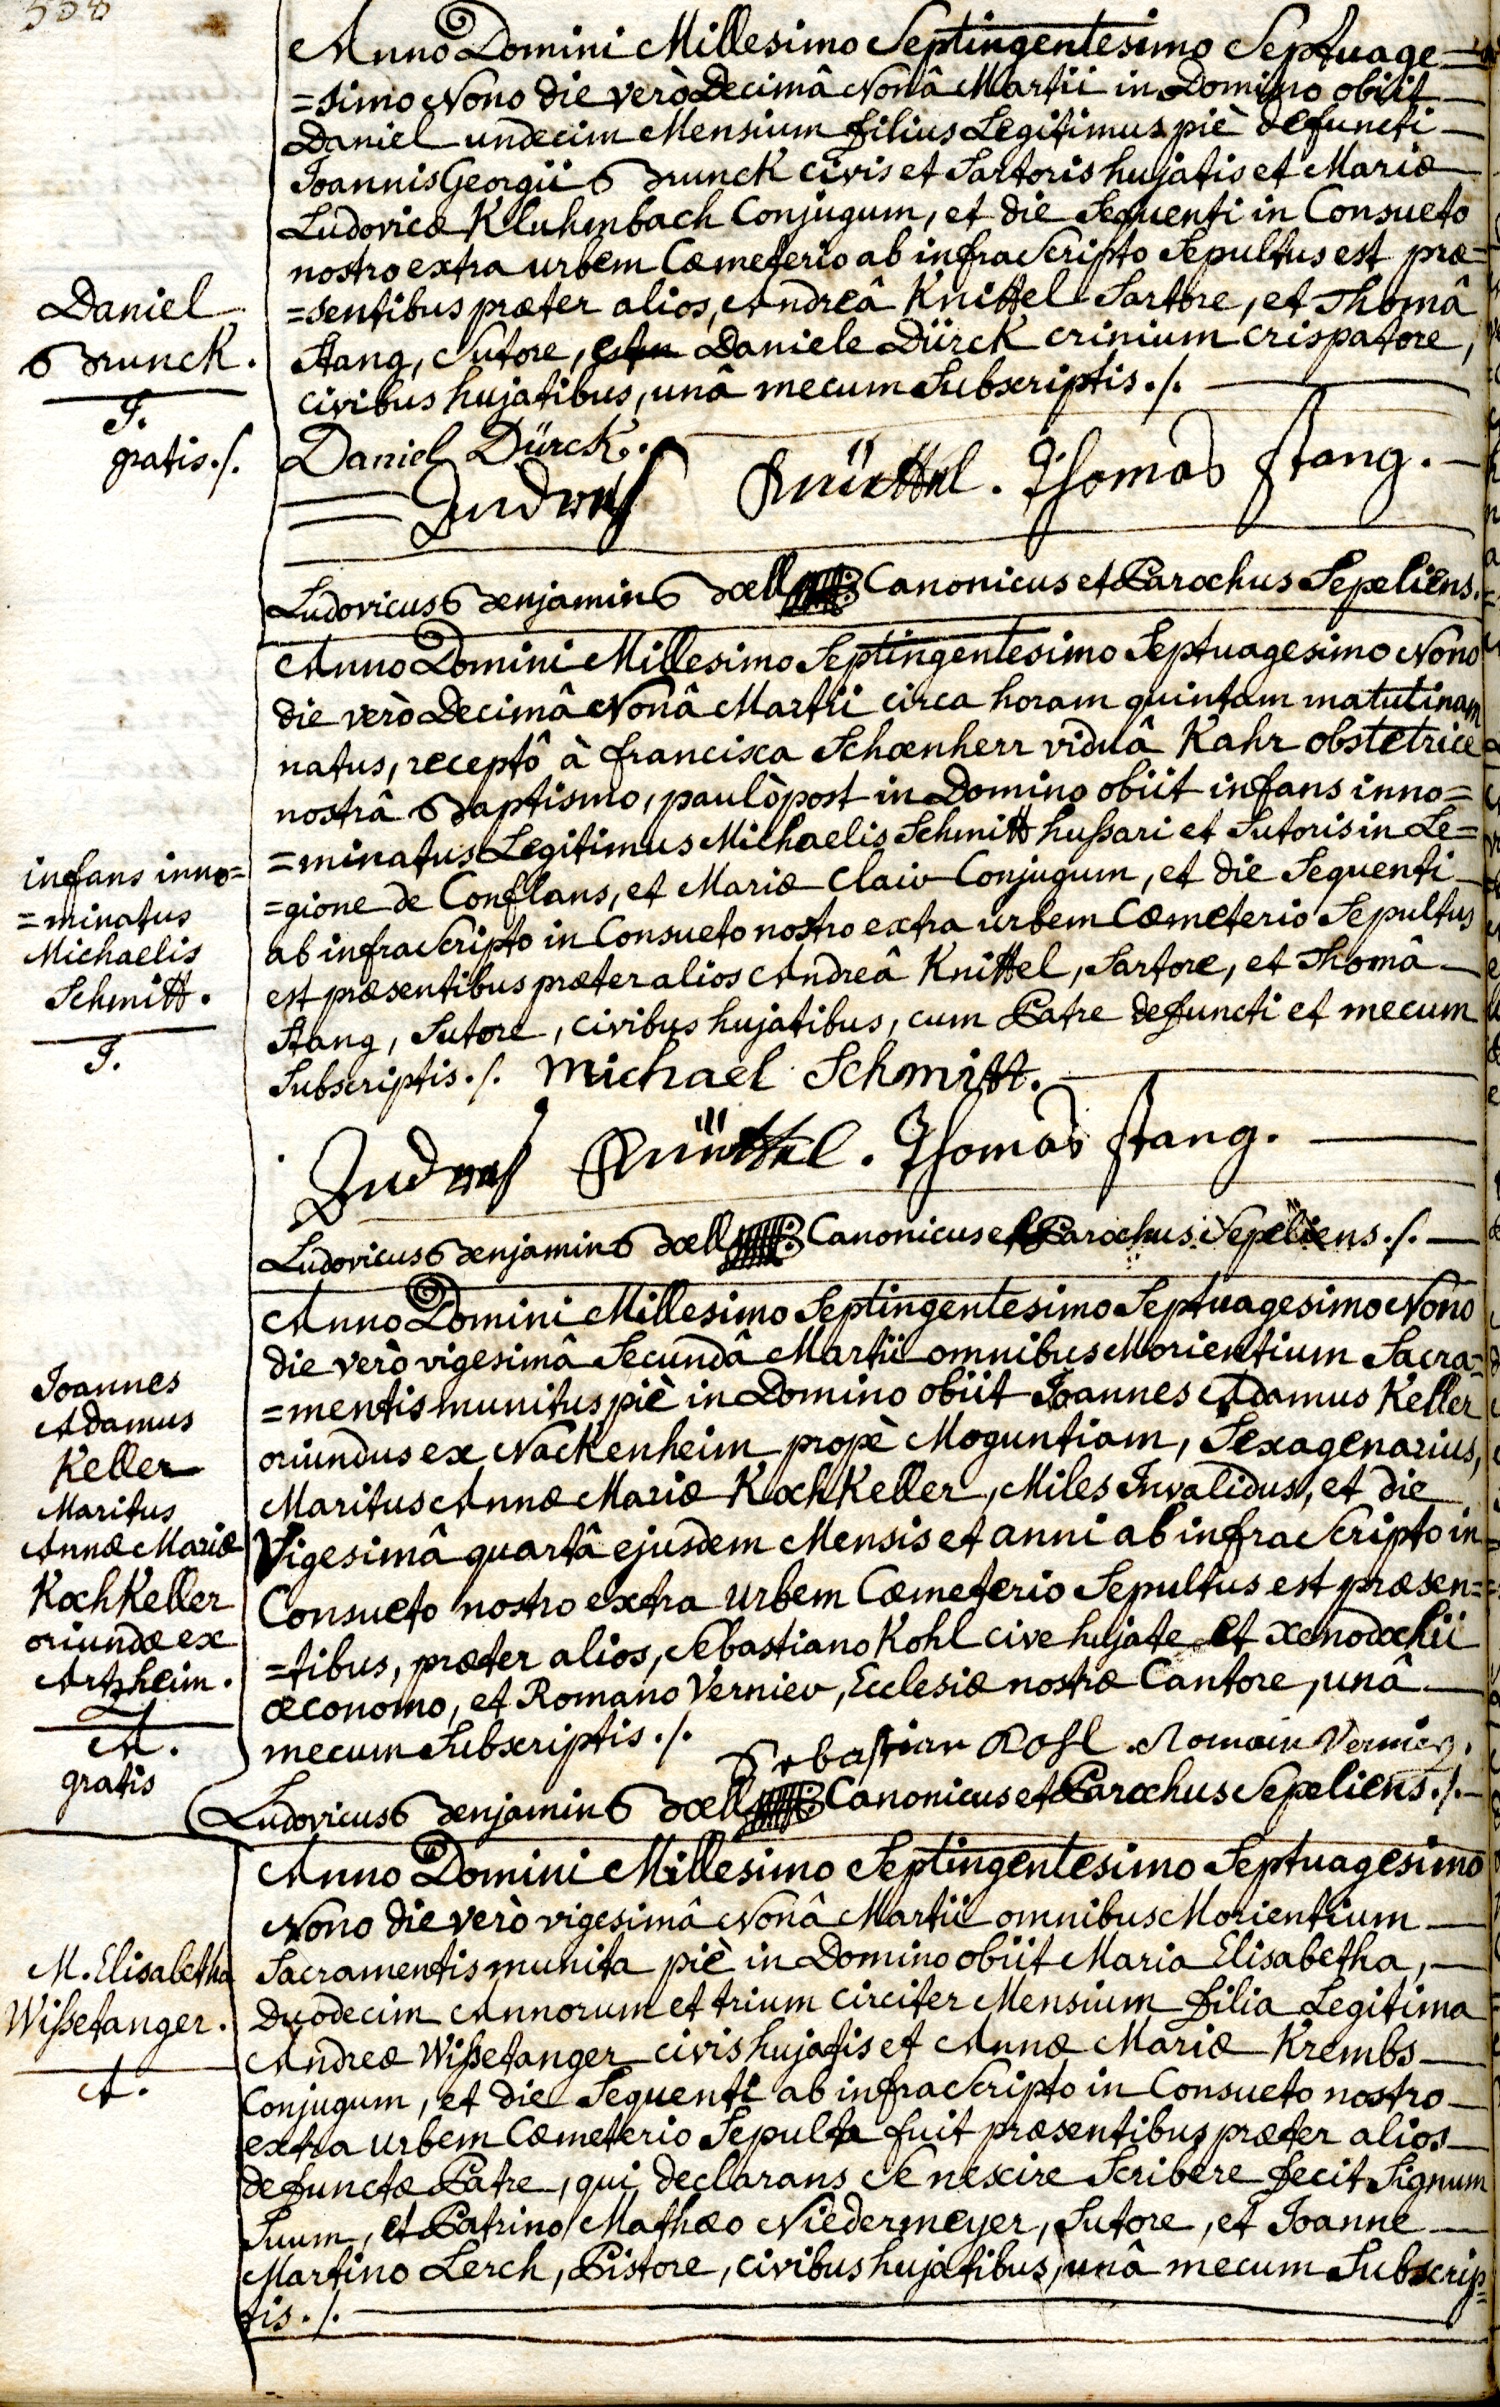 558
Anno Domini Millesimo Septingentesimo Septuage=
=simo Nono die verò Decimâ Nonâ Martii in Domino obiit
Daniel undecim Mensium filius Legitimus piè defuncti
Joannis Georgii Brunck civis et Sartoris hujatis et Mariæ
Ludovicæ Kluhmbach Conjugum, et die Sequenti in Consueto
nostro extra urbem Cœmeterio ab infra Scripto Sepultus est præ=
=sentibus præter alios, Andreâ Knittel Sartore, et Thomâ
Stang, Sutore, Daniele Dürck crinium crispatore,
civibus hujatibus, unâ mecum Subscriptis ./.
Daniel
Brunck.
J.
gratis ./.
Daniel Dürck.
Andreas Knüttel. Thomas Stang.
Ludovicus Benjamin Boell Canonicus et Parochus Sepeliens.
Anno Domini Millesimo Septingentesimo Septuagesimo Nono
die verò Decimâ Nonâ Martii circa horam quintam matutinam
natus, receptô à francisca Schœnherr viduâ Kahr obstetrice
nostrâ Baptismo, paulò post in Domino obiit infans inno=
=minatus Legitimus Michaelis Schmitt hussari et Sutoris in Le=
=gione de Conflans, et Mariæ Claiv Conjugum, et die Sequenti
ab infra Scripto in Consueto nostro extra urbem Cœmeterio Sepultus
est præsentibus præter alios Andreâ Knittel, Sartore, et Thomâ
Stang, Sutore, civibus hujatibus, cum Patre defuncti et mecum
Subscriptis ./. Michael Schmitt.
infans inno=
=minatus
Michaelis
Schmitt.
J.
Andreas Knüttel. Thomas Stang.
Ludovicus Benjamin Boell Canonicus et Parochus Sepeliens ./.
Anno Domini Millesimo Septingentesimo Septuagesimo Nono
die verò vigesimâ Secundâ Martii omnibus Morientium Sacra=
=mentis munitus piè in Domino obiit Joannes Adamus Keller
oriundus ex Nackenheim propè Moguntiam, Sexagenarius,
Maritus Annæ Mariæ Koch Keller, Miles Invalidus, et die
Vigesimâ quartâ ejusdem Mensis et anni ab infra Scripto in
Consueto nostro extra urbem Cœmeterio Sepultus est præsen=
=tibus, præter alios, Sebastiano Kohl cive hujate et Xenodochii
œconomo, et Romano Vernier, Ecclesiæ nostræ Cantore, unâ
mecum Subscriptis ./.
Joannes
Adamus
Keller
Maritus
Annæ Mariæ
Koch Keller
oriundæ ex
Artzheim.
A.
gratis
Sebastian Kohl. Romain Vernier.
Ludovicus Benjamin Boell Canonicus et Parochus Sepeliens ./.
Anno Domini Millesimo Septingentesimo Septuagesimo
Nono die verò vigesimâ Nonâ Martii omnibus Morientium
Sacramentis munita piè in Domino obiit Maria Elisabetha,
Duodecim Annorum et trium circiter Mensium filia Legitima
Andreæ Wissetanger civis hujatis et Annæ Mariæ Krembs
Conjugum, et die Sequenti ab infra Scripto in Consueto nostro
extra urbem Cœmeterio Sepulta fuit præsentibus præter alios
defunctæ Patre, qui declarans Se nescire Scribere fecit Signum
Suum, et Patrino Mathæo Niedermeyer, Sutore, et Joanne
Martino Lerch, Pistore, civibus hujatibus, unâ mecum Subscrip=
tis ./.
M. Elisabetha
Wissetanger.
A.